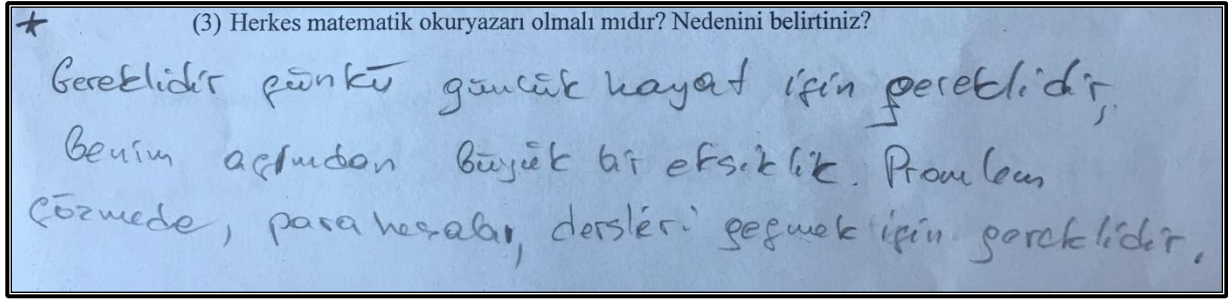 * (3) Herkes matematik okuryazarı olmalı mıdır? Nedenini belirtiniz?
Gereklidir çünkü günlük hayat için gereklidir,
Benim açımdan büyük bir eksiklik. Promlem
çözmede, para hesabı, dersleri geçmek için gereklidir.